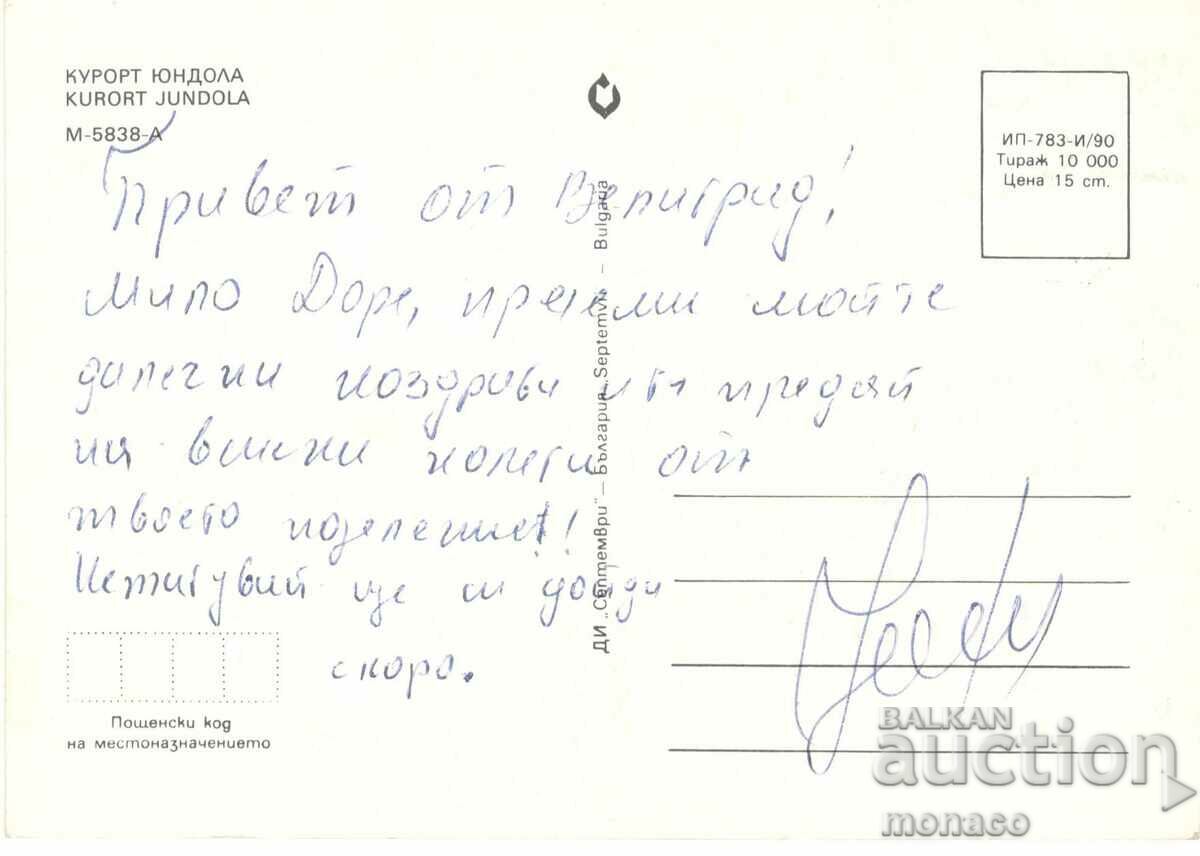 КУРОРТ ЮНДОЛА
KURORT JUNDOLA
М-5838-А
ИП-783-И/90
Тираж 10 000
Цена 15 ст.
Привет от Велиград!
Мило Доре, приеми моите
далечни поздрави и ги предай
на всички колеги от
твоето поделение!!
Не тъгувай ще си дойда
скоро.
ДИ „Септември" – България, Septemvri – Bulgaria
Пощенски код
на местоназначението
BALKAN
auction
monaco